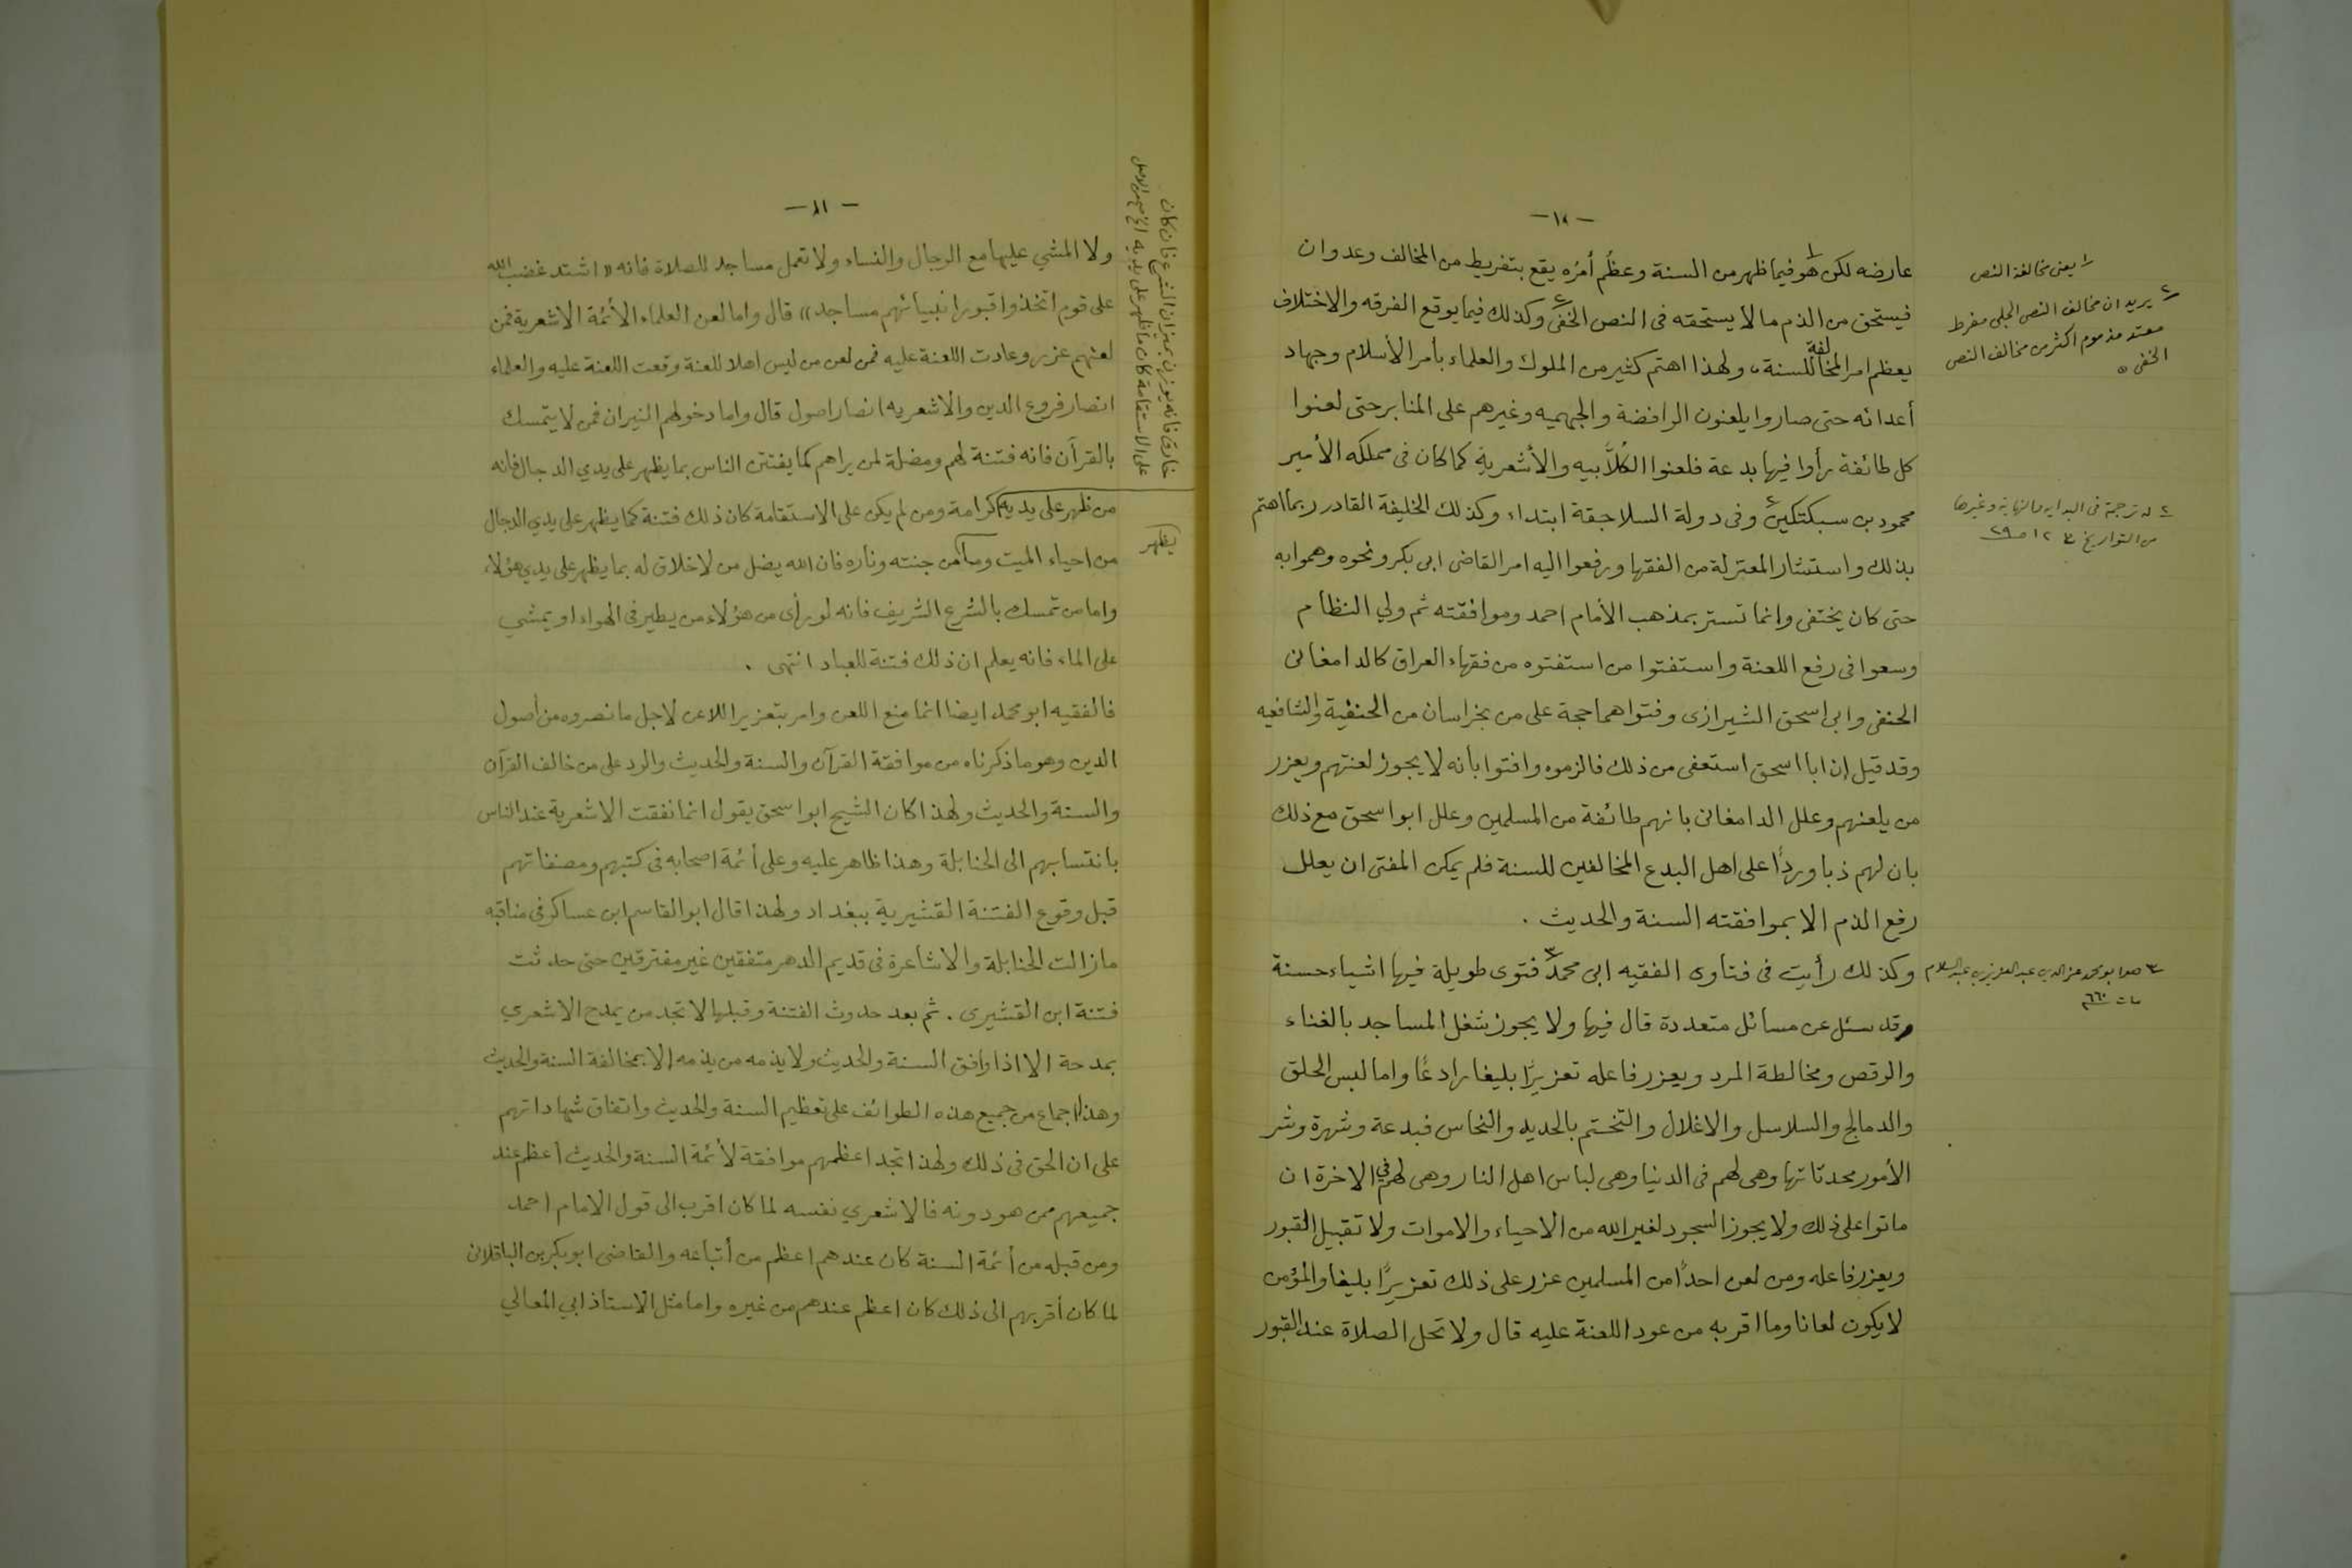 - ١٠ -
عارضه لكن هو فيما ظهر من السنة وعظُم أمرُه يقع بتفريط من المخالف وعدوان
فيستحق من الذم ما لا يستحقه فى النص الخفى وكذلك فيما يوقع الفرقه والاختلاف
يعظم امر المخالفة للسنة، ولهذا اهتم كثير من الملوك والعلماء بأمر الأسلام وجهاد
أعدائه حتى صاروا يلعنون الرافضة والجهميه وغيرهم على المنابر حتى لعنوا
كل طائفة رأوا فيها بدعة فلعنوا الكُلاَّبيه والأشعرية كما كان فى مملكه الأمير
محمود بن سبكتكين وفى دولة السلاجقة ابتداء وكذلك الخليفة القادر ربما اهتم
بذلك واستشار المعتزلة من الفقها ورفعوا اليه امر القاضى ابى بكر ونحوه وهموا به
حتى كان يختفى وانما تستر بمذهب الأمام احمد وموافقته ثم ولي النظام
وسعوا فى رفع اللعنة واستفتوا من استفتوه من فقهاء العراق كالدامغانى
الحنفى وابى اسحق الشيرازى وفتواهما حجة على من بخراسان من الحنفية والشافعيه
وقد قيل إن ابا اسحق استعفى من ذلك فالزموه وافتوا بأنه لا يجوز لعنتهم ويعزر
من يلعنهم وعلل الدامغانى بانهم طائفة من المسلمين وعلل ابو اسحق مع ذلك
بان لهم ذبا وردًا على اهل البدع المخالفين للسنة فلم يمكن المفتى ان يعلل
رفع الذم الا بموافقته السنة والحديث .
وكذلك رأيت فى فتاوى الفقيه ابى محمد٣ فتوى طويلة فيها اشياء حسنة
وقد سئل عن مسائل متعددة قال فيها ولا يجوز شغل المساجد بالغناء
والرقص ومخالطة المرد ويعزر فاعله تعزيرًا بليغا رادعًا واما لبس الحلق
والدمالج والسلاسل والاغلال والتختم بالحديد والنحاس فبدعة وشهرة وشر
الأمور محدثاتها وهى لهم فى الدنيا وهى لباس اهل النار وهى لهم فى الاخرة ان
ماتوا على ذلك ولا يجوز السجود لغير الله من الاحياء والاموات ولا تقبيل القبور
ويعزر فاعله ومن لعن احدًا من المسلمين عزر على ذلك تعزيرًا بليغا والمؤمن
لا يكون لعانا وما اقربه من عود اللعنة عليه قال ولا تحل الصلاة عند القبور
١ يعنى مخالفة النص
٢ يريد ان مخالف النص الجلى مفرط
معتد مذموم اكثر من مخالف النص
الخفى
٢ له ترجمة فى البدايه والنهاية وغيرها
من التواريخ ١٢ ص ٢٩
٣ هو ابو محمد عز الدين عبد العزيز بن عبد السلام
مات ٦٦٠
- ١١ -
ولا المشي عليها مع الرجال والنساء ولا تعمل مساجد للصلاة فانه «اشتد غضب الله
على قوم اتخذوا قبور انبيائهم مساجد» قال واما لعن العلماء الأئمة الاشعرية فمن
لعنهم عزر وعادت اللعنة عليه فمن لعن من ليس اهلا للعنة وقعت اللعنة عليه والعلماء
انصار فروع الدين والاشعريه انصار اصول قال واما دخولهم النيران فمن لا يتمسك
بالقرآن فانه فتنة لهم ومضلة لمن يراهم كما يفتتن الناس بما يظهر على يدي الدجال فانه
من ظهر على يديه كرامة ومن لم يكن على الاستقامة كان ذلك فتنة كما يظهر على يدي الدجال
من احياء الميت وما من جنته وناره فان الله يضل من لا خلاق له بما يظهر على يدي هؤلاء
واما من تمسك بالشرع الشريف فانه لو رأى من هؤلاء من يطير فى الهواء او يمشي
على الماء فانه يعلم ان ذلك فتنة للعباد انتهى .
فالفقيه ابو محمد ايضا انما منع اللعن وامر بتعزير اللاعن لاجل ما نصروه من أصول
الدين وهو ما ذكرناه من موافقة القرآن والسنة والحديث والرد على من خالف القرآن
والسنة والحديث ولهذا كان الشيخ ابو اسحق يقول انما نفقت الاشعرية عند الناس
بانتسابهم الى الحنابلة وهذا ظاهر عليه وعلى أئمة اصحابه فى كتبهم ومصنفاتهم
قبل وقوع الفتنة القشيرية ببغداد ولهذا قال ابو القاسم ابن عساكر فى مناقبه
ما زالت الحنابلة والاشاعرة فى قديم الدهر متفقين غير مفترقين حتى حدثت
فتنة ابن القشيرى . ثم بعد حدوث الفتنة وقبلها لا تجد من يمدح الاشعري
بمدحة الا اذا وافق السنة والحديث ولا يذمه من يذمه إلا بمخالفة السنة والحديث
وهذا اجماع من جميع هذه الطوائف على تعظيم السنة والحديث واتفاق شهاداتهم
على ان الحق فى ذلك ولهذا تجد اعظمهم موافقة لأئمة السنة والحديث أعظم عند
جميعهم ممن هو دونه فالاشعري نفسه لما كان اقرب الى قول الامام احمد
ومن قبله من أئمة السنة كان عندهم اعظم من أتباعه والقاضى ابو بكر بن الباقلانى
لما كان أقربهم الى ذلك كان اعظم عندهم من غيره واما مثل الاستاذ ابي المعالي
خارق فانه يوزن بميزان الشرع فان كان
على الاستقامة كان ما ظهر على يديه
يظهر